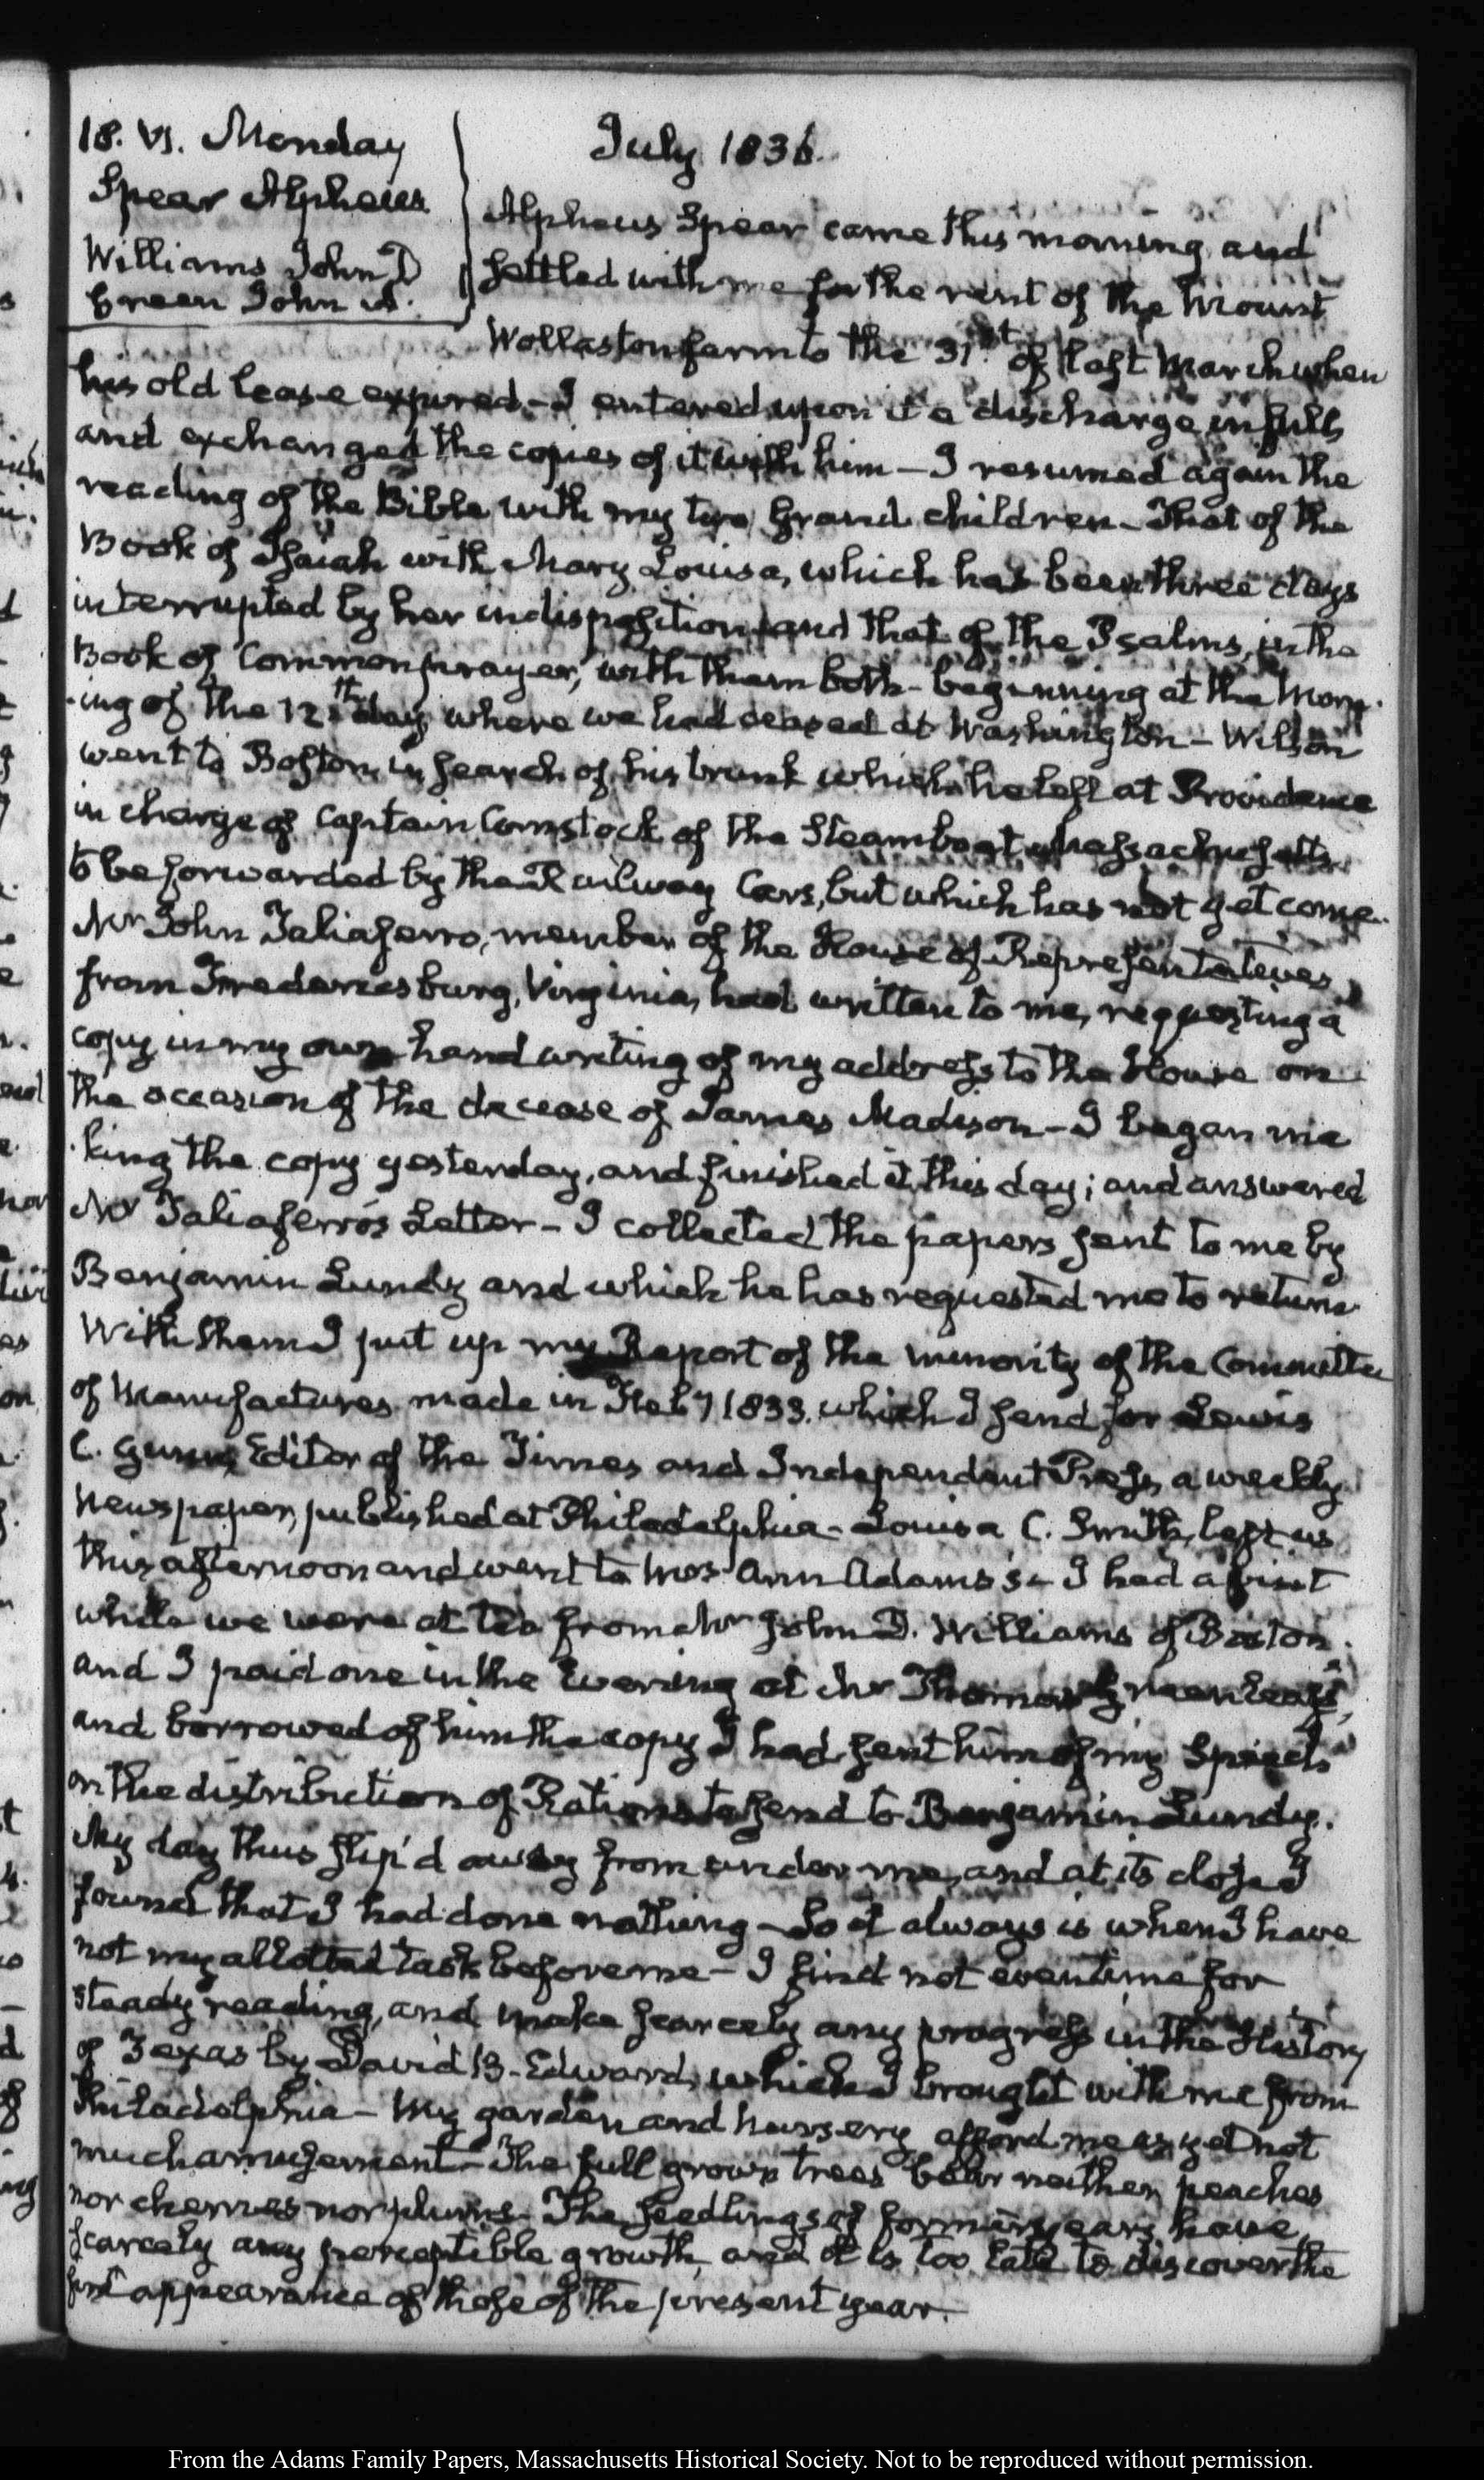 July 1836.
18. VI. Monday
Spear Alpheus
Williams John D
Green John A.
Alpheus Spear came this morning, and
settled with me for the rent of the Mount
Wollaston farm to the 31st. of last March when
his old lease expired. - I entered upon it a discharge in full,
and exchanged the copies of it with him - I resumed again the
reading of the Bible with my two Grand children - That of the
Book of Isaiah with Mary Louisa, which has been three days
interrupted by her indisposition, and that of the Psalms, in the
Book of Common prayer, with them both - beginning at the Morn-
-ing of the 12th. day, where we had ceased at Washington - Wilson
went to Boston in search of his trunk which he left at Providence
in charge of Captain Comstock of the Steamboat Massachusetts
to be forwarded by the Railway Cars, but which has not yet come.
Mr John Taliaferro, member of the House of Representatives,
from Fredericksburg, Virginia, had written to me, requesting a
copy in my own hand writing of my address to the House on
the occasion of the decease of James Madison - I began ma
-king the copy yesterday, and finished it this day; and answered
Mr Taliaferro's Letter - I collected the papers sent to me by
Benjamin Lundy and which he has requested me to return
With them I put up my Report of the minority of the Committee
of Manufactures made in Feby 1833. which I send for Lewis
C. Gunn, Editor of the Times and Independent Press, a weekly
Newspaper, published at Philadelphia - Louisa C. Smith, left us
this afternoon and went to Mrs Ann Adams's - I had a visit
while we were at tea from Mr John D. Williams of Boston.
and I paid one in the Evening at Mr Thomas Greenleaf's,
and borrowed of him the copy I had sent him of my Speech
on the distribution of Rations to send to Benjamin Lundy.
My day thus slip'd away from under me, and at its close I
found that I had done nothing - So it always is when I have
not my allotted task before me - I find not even time for
steady reading, and make scarcely any progress in the History
of Texas by David B. Edward, which I brought with me from
Philadelphia - My garden and nursery afford me as yet not
much amusement - The full grown trees bear neither peaches
nor cherries nor plums - The seedlings of former years have
scarcely any perceptible growth, and it is too late to discover the
first appearance of those of the present year.
From the Adams Family Papers, Massachusetts Historical Society. Not to be reproduced without permission.